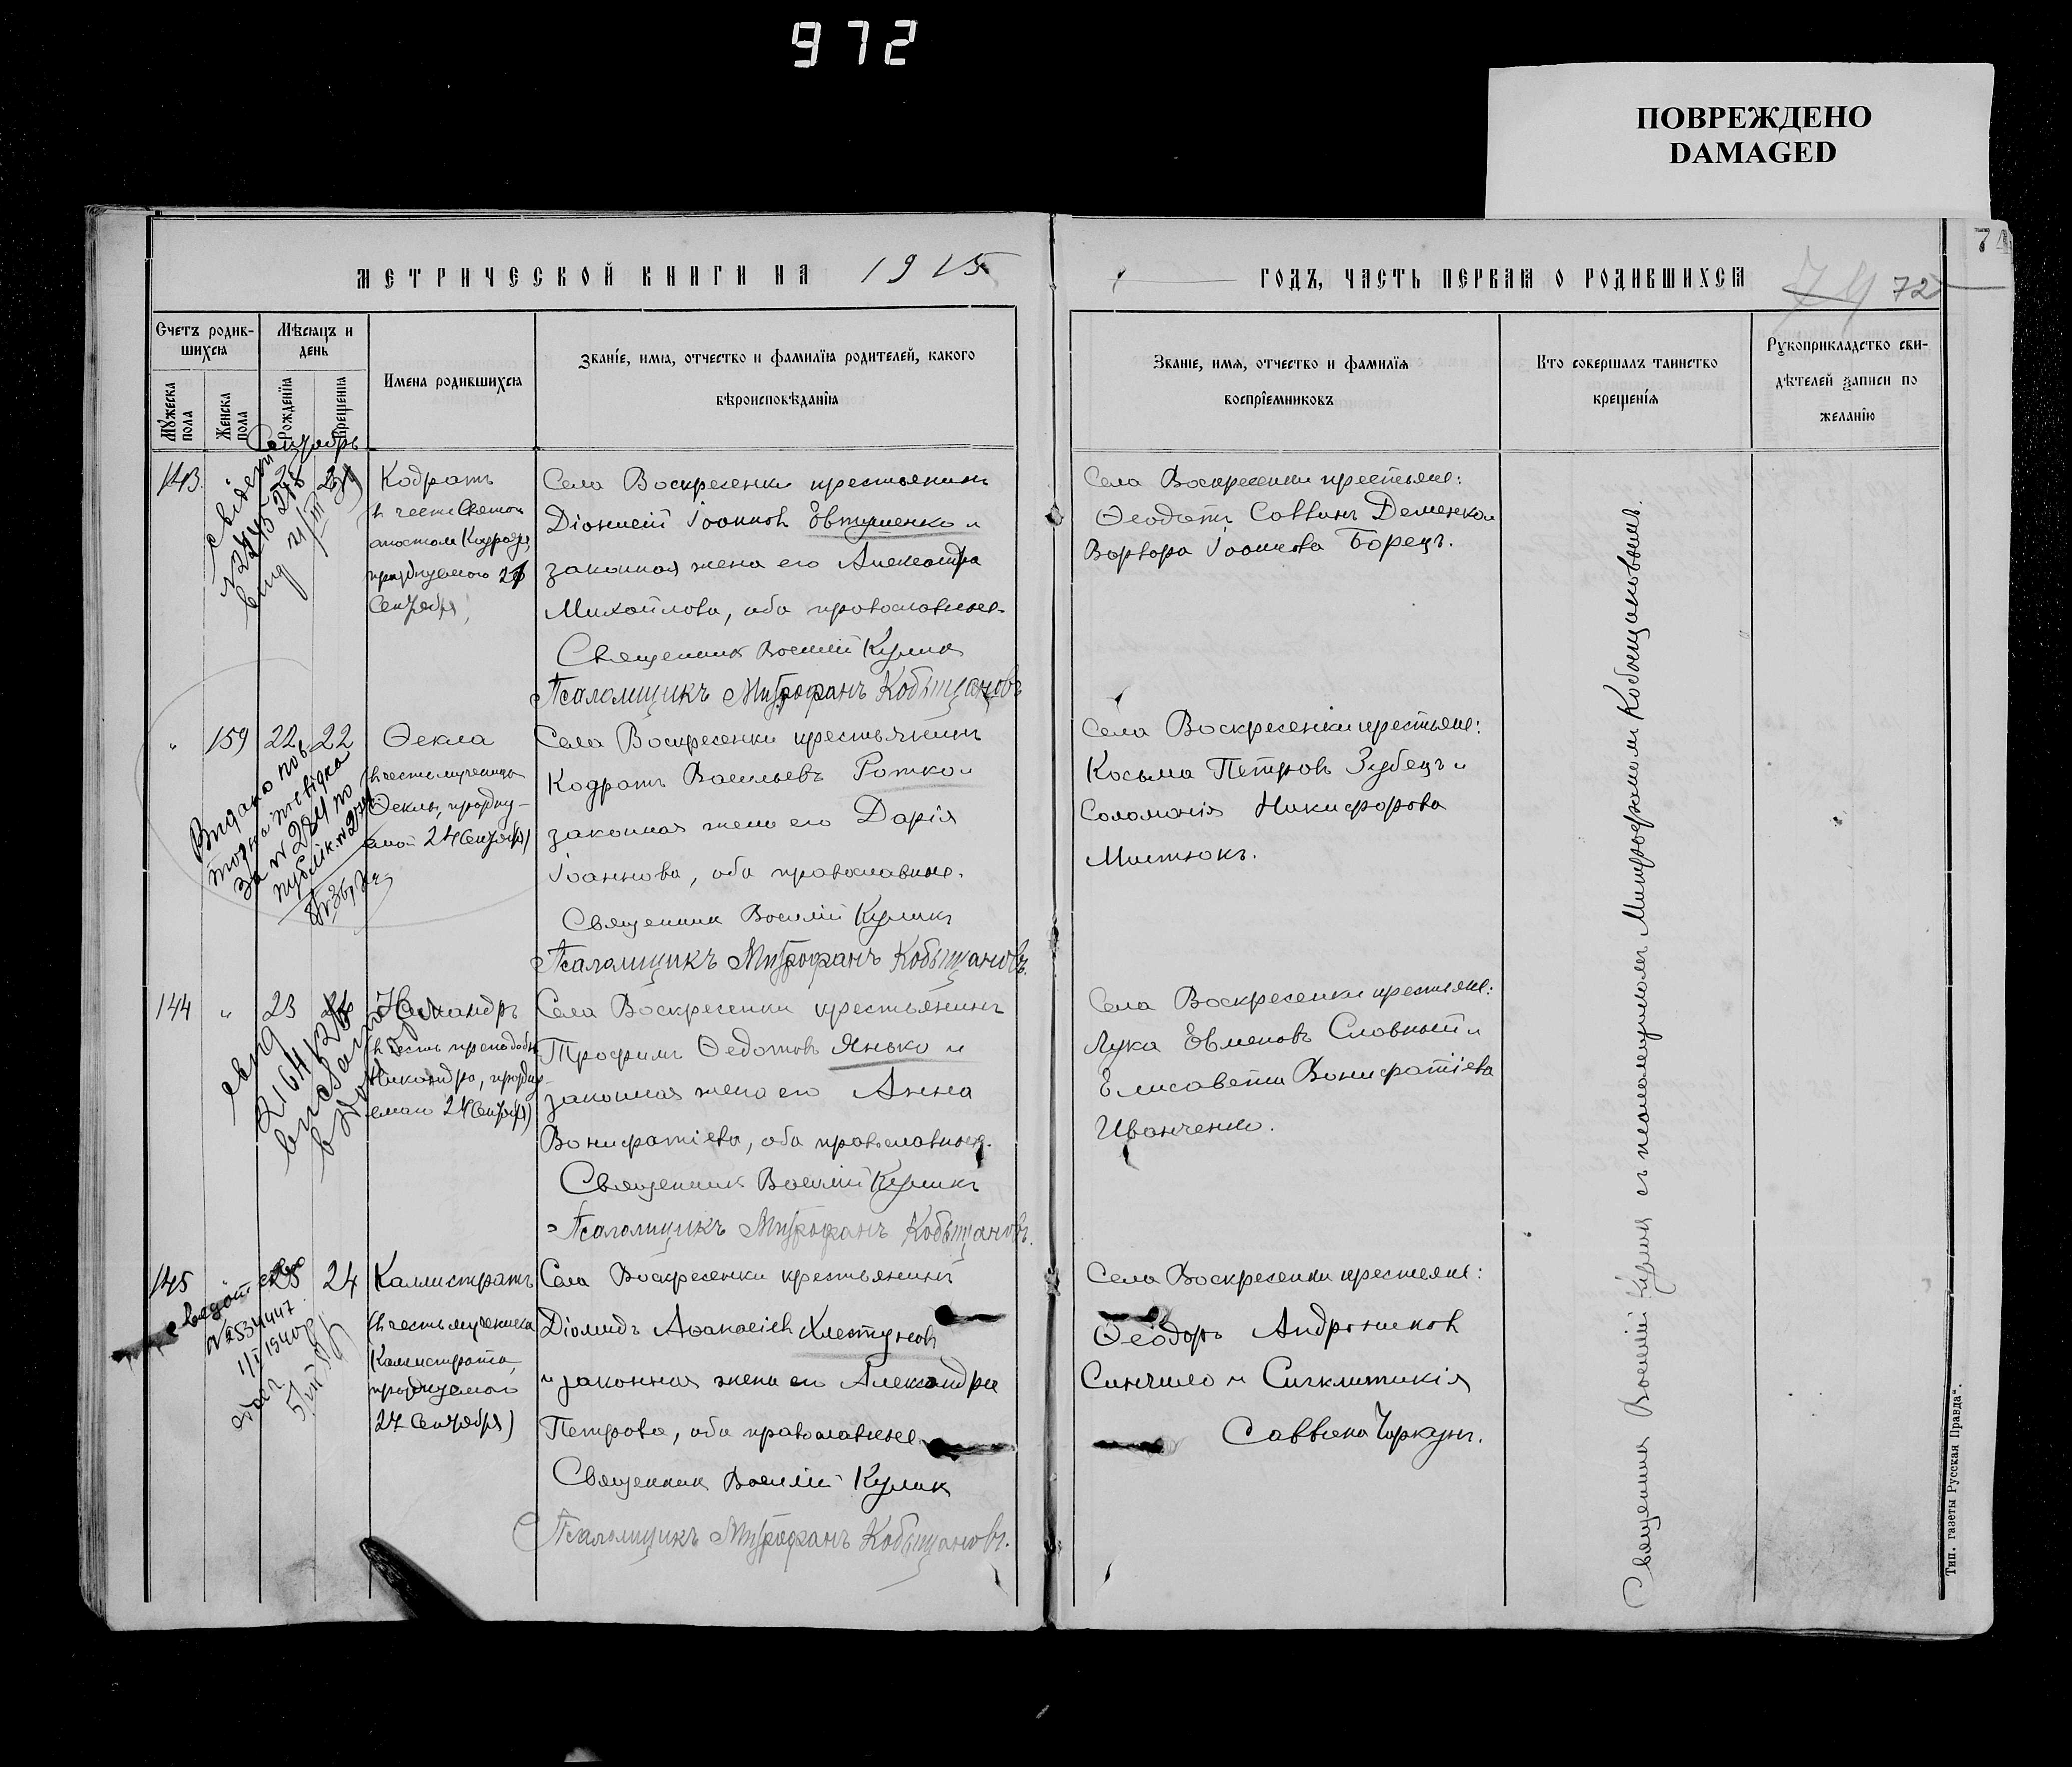 972
ПОВРЕЖДЕНО
DAMAGED
МЕТРИЧЕСКОЙ КНИГИ НА 1915
ГОДЪ, ЧАСТЬ ПЕРВАЯ О РОДИВШИХСЯ
74 72
Счетъ родив-
шихся
Мѣсяцъ и
день
Мужеска
пола
Женска
пола
Рожденія
Крещенія
Имена родившихся
Званіе, имя, отчество и фамилія родителей, какого
вѣроисповѣданія
Званіе, имя, отчество и фамилія
воспріемниковъ
Кто совершалъ таинство
крещенія
Рукоприкладство сви-
дѣтелей записи по
желанію
Сентябрь
143
Кодратъ
въ честь Святого
апостола Кодрата,
празднуемого 21
Сентября
Села Воскресенки крестьянинъ
Діонисій Іоанновъ Евтушенко и
законная жена его Александра
Михайлова, оба православные.
Священникъ Василій Куликъ
Псаломщикъ Митрофанъ Кобыщановъ
Села Воскресенки крестьяне:
Ѳеодотъ Саввинъ Деменко и
Варвара Іоаннова Борецъ.
" 159 22 22
Ѳекла
(въ честь мученицы
Ѳеклы, праздну-
емой 24 Сентября)
Видано пов
Села Воскресенки крестьянинъ
Кодратъ Васильевъ Ротко и
законная жена его Дарія
Іоаннова, оба православные.
Священникъ Василій Куликъ
Псаломщикъ Митрофанъ Кобыщановъ.
Села Воскресенки крестьяне:
Косьма Петровъ Зубецъ и
Соломонія Никифорова
144 " 23
Никандръ
(въ честь преподобн.
Никандра, праздну-
емаго 24 Сентября)
Села Воскресенки крестьянинъ
Трофимъ Ѳедотовъ Янько и
законная жена его Анна
Вонифатіева, оба православные.
Священникъ Василій Куликъ
Псаломщикъ Митрофанъ Кобыщановъ.
Села Воскресенки крестьяне:
Лука Евменовъ Словный и
Елисавета Вонифатіева
Иванченко.
145 24
Каллистратъ
(въ честь мученика
Каллистрата,
празднуемого
27 Сентября)
N 2534447
Села Воскресенки крестьянинъ
Діомидъ Аѳанасіевъ Хлестуновъ
и законная жена его Александра
Петрова, оба православные.
Священникъ Василій Куликъ
Псаломщикъ Митрофанъ Кобыщановъ.
Села Воскресенки крестьяне:
Ѳеодоръ Андрониковъ
Синчило и Сигклитикія
Саввина Чиркунъ.
Священникъ Василій Куликъ съ псаломщикомъ Митрофаномъ Кобыщановымъ.
Тип. газеты Русская Правда".